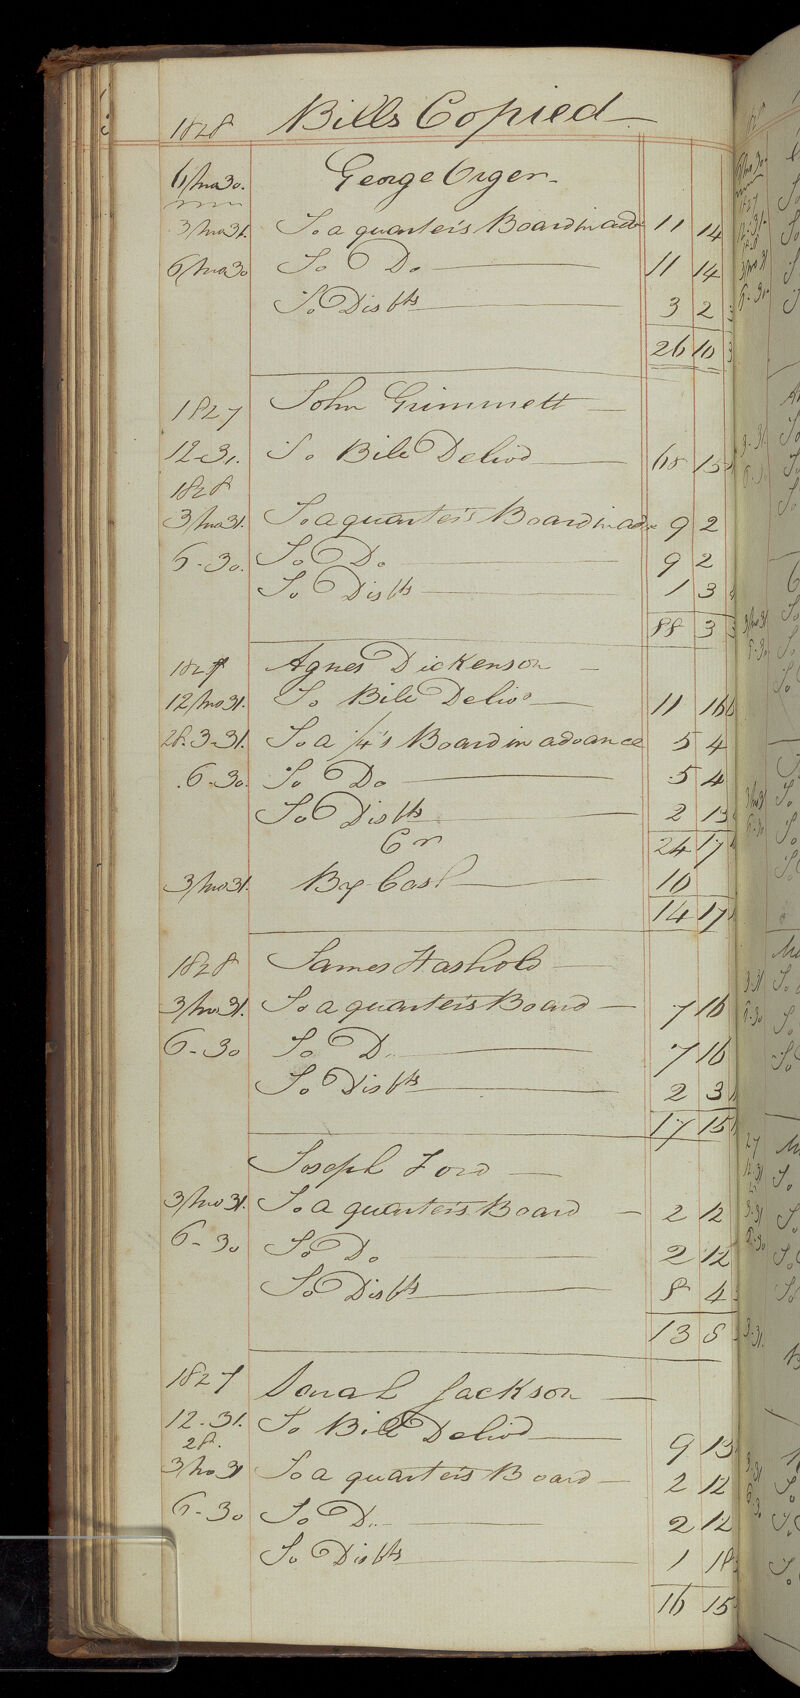 1828 Bills Copied
6/mo 30. George Orger
3/mo 31. To a quarter's Board in adv 11 14
6/mo 30 To Do 11 14
To Disbts 3 2 3
26 10 3
1827 John Grimmett
12-31. To Bill Delivd 68 15
1828
3/mo 31. To a quarter's Board in adv 9 2
6-30. To Do 9 2
To Disbts 1 3
88 3 3
1827 Agnes Dickenson
12/mo 31. To Bill Delivd 11 16
28. 3-31. To a 1/4's Board in advance 5 4
6-30. To Do 5 4
To Disbts 2 13
Cr 24 17
3/mo 31. By Cash 10
14 17
1828 James Hashold
3/mo 31. To a quarter's Board 7 16
6-30 To D 7 16
To Disbts 2 3
17 15
Joseph Ford
3/mo 31. To a quarter's Board 2 12
6-30 To Do 2 12
To Disbts 8 4
13 8
1827 Sarah Jackson
12.31. To Bill Delivd 9 13
28.
3/mo 31 To a quarter's Board 2 12
6-30 To D 2 12
To Disbts 1 18
16 15